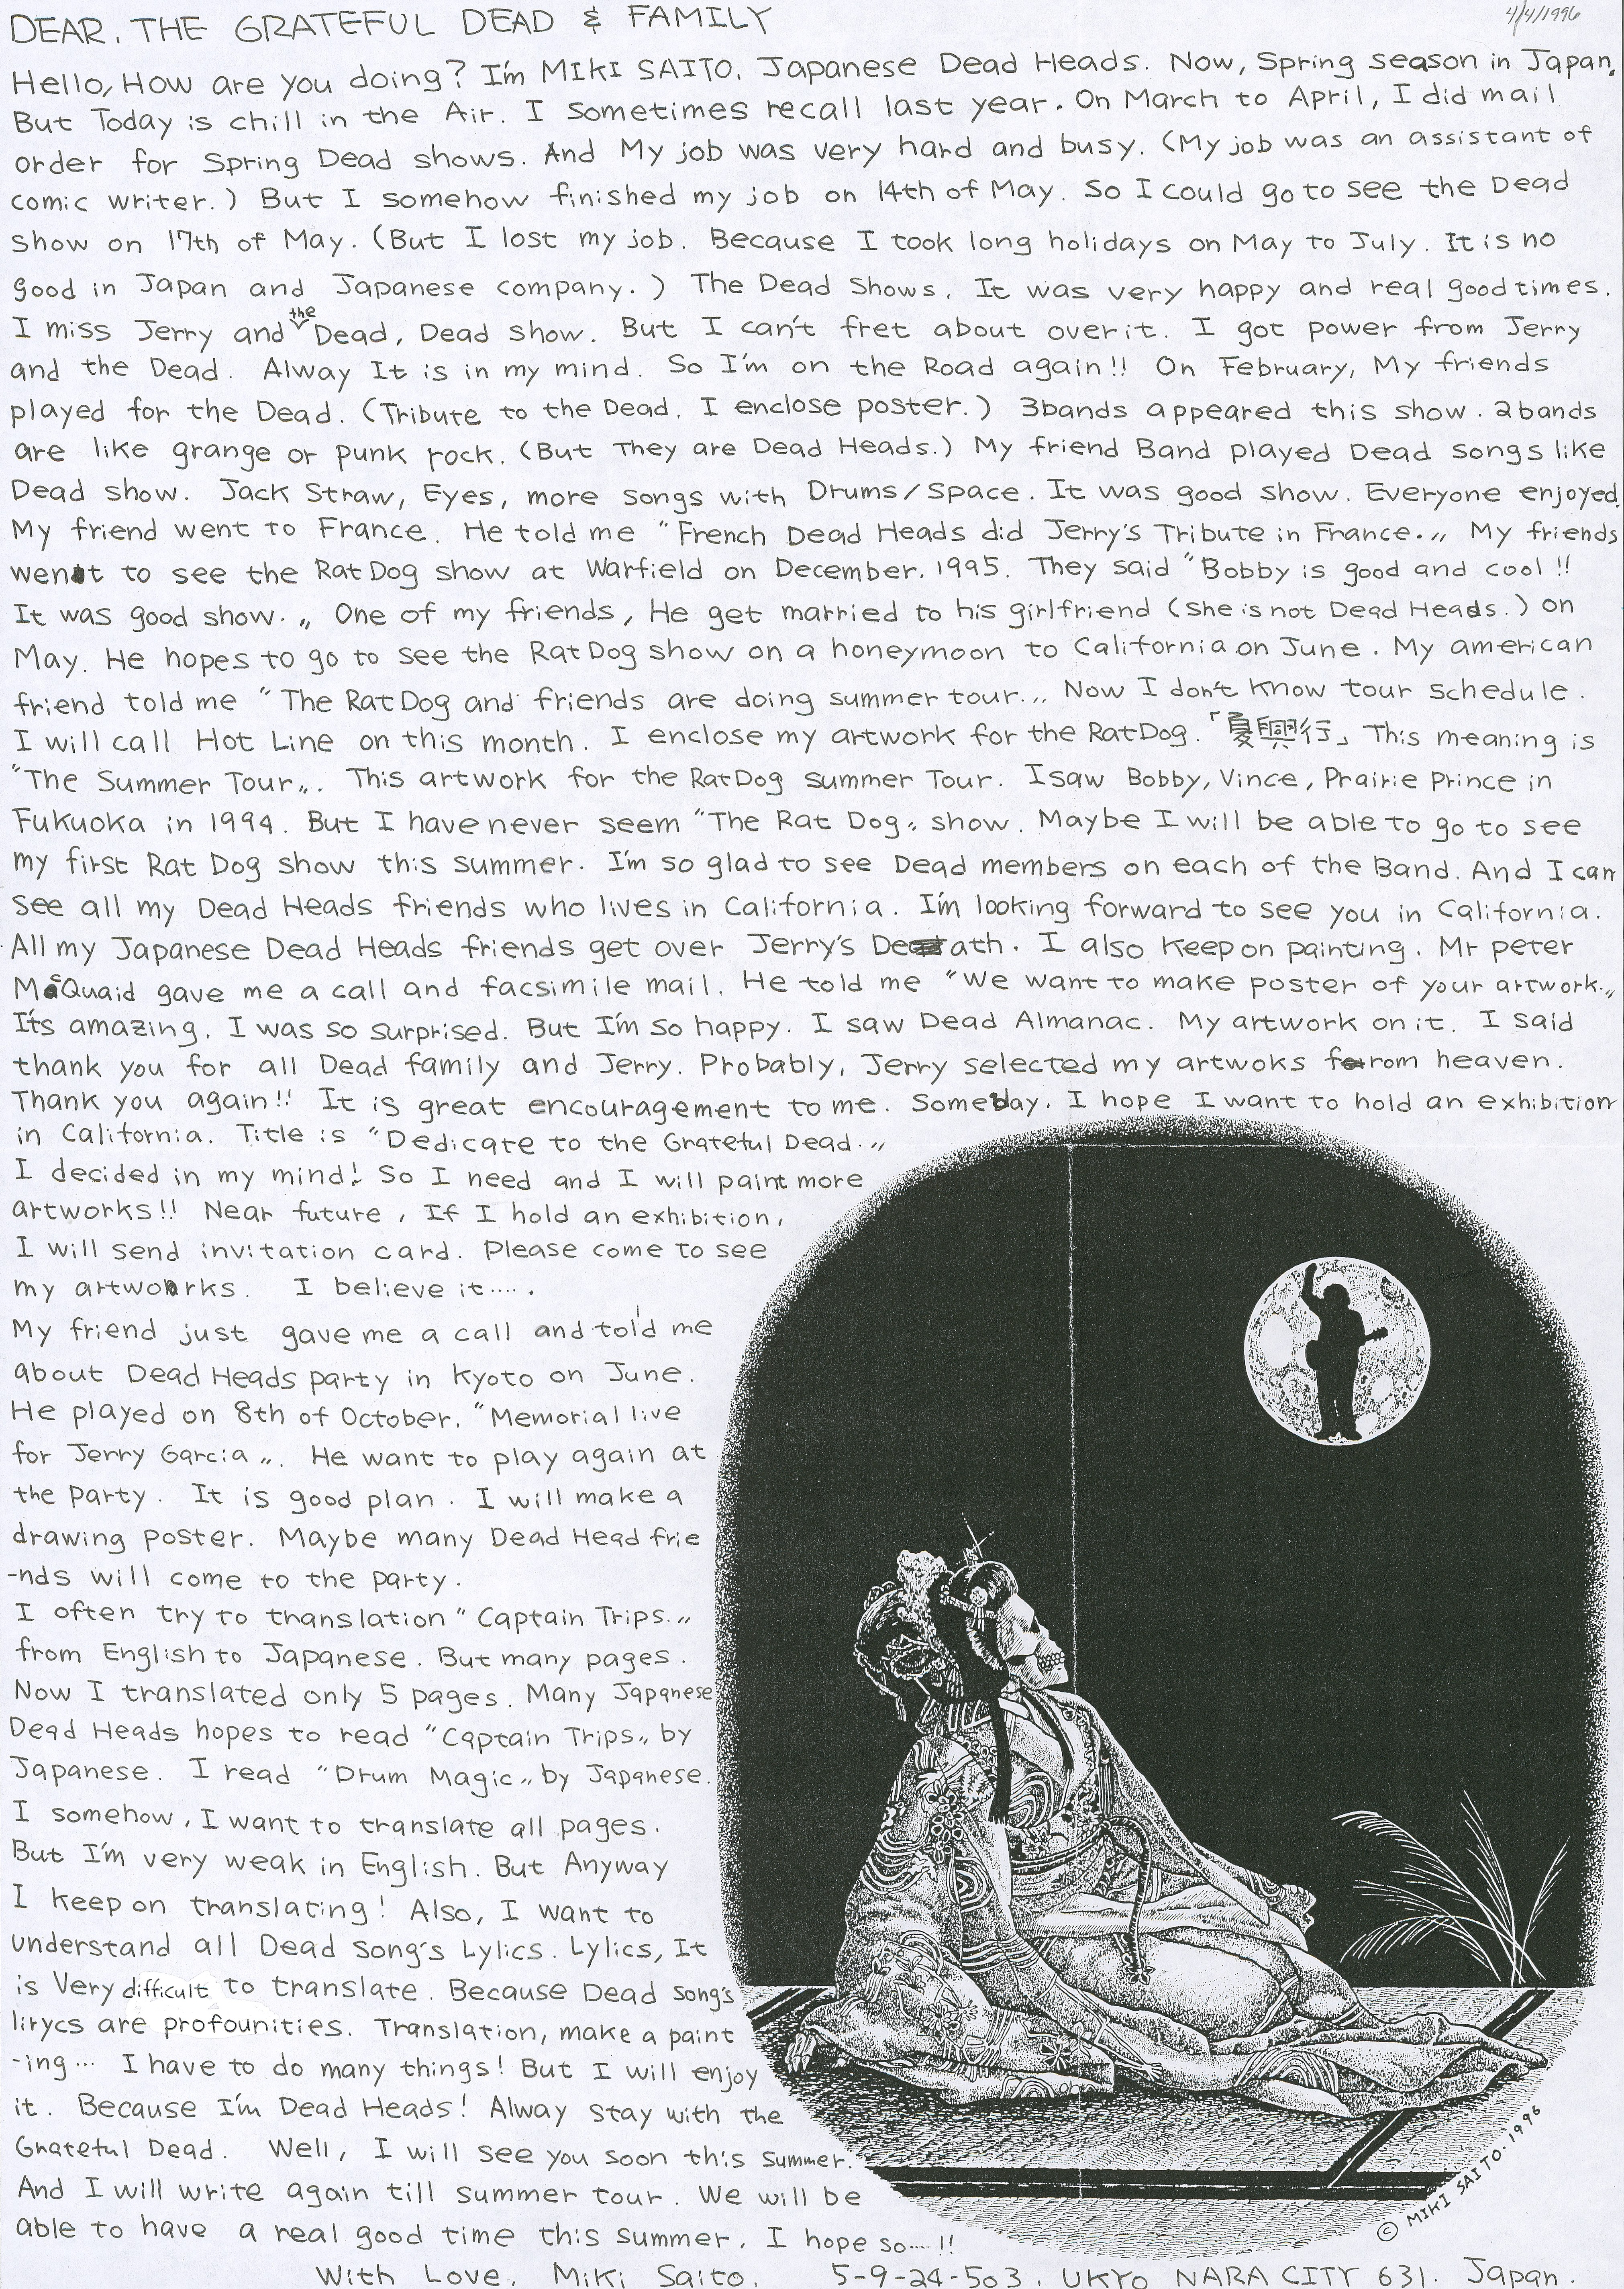 4/4/1996
DEAR, THE GRATEFUL DEAD & FAMILY
Hello, How are you doing? I'm MIKI SAITO. Japanese Dead Heads. Now, Spring season in Japan.
But Today is chill in the Air. I sometimes recall last year. On March to April, I did mail
order for Spring Dead shows. And My job was very hard and busy. (My job was an assistant of
comic writer.) But I somehow finished my job on 14th of May. So I could go to see the Dead
show on 17th of May. (But I lost my job. Because I took long holidays on May to July. It is no
good in Japan and Japanese company.) The Dead Shows. It was very happy and real good times.
I miss Jerry and the Dead, Dead show. But I can't fret about over it. I got power from Jerry
and the Dead. Alway It is in my mind. So I'm on the Road again!! On February, My friends
played for the Dead. (Tribute to the Dead. I enclose poster.) 3bands appeared this show. 2bands
are like grange or punk rock. (But They are Dead Heads.) My friend Band played Dead songs like
Dead show. Jack Straw, Eyes, more songs with Drums/Space. It was good show. Everyone enjoyed.
My friend went to France. He told me "French Dead Heads did Jerry's Tribute in France.„ My friends
went to see the RatDog show at Warfield on December, 1995. They said "Bobby is good and cool!!
It was good show.„ One of my friends, He get married to his girlfriend (she is not Dead Heads.) on
May. He hopes to go to see the RatDog show on a honeymoon to California on June. My american
friend told me "The RatDog and friends are doing summer tour.„ Now I don't know tour schedule.
I will call Hot Line on this month. I enclose my artwork for the RatDog. 「夏興行」 This meaning is
"The Summer Tour„. This artwork for the RatDog summer Tour. I saw Bobby, Vince, Prairie Prince in
Fukuoka in 1994. But I have never seem "The Rat Dog„ show. Maybe I will be able to go to see
my first Rat Dog show this summer. I'm so glad to see Dead members on each of the Band. And I can
see all my Dead Heads friends who lives in California. I'm looking forward to see you in California.
All my Japanese Dead Heads friends get over Jerry's Death. I also keep on painting. Mr peter
McQuaid gave me a call and facsimile mail. He told me "We want to make poster of your artwork.„
It's amazing. I was so surprised. But I'm so happy. I saw Dead Almanac. My artwork on it. I said
thank you for all Dead family and Jerry. Probably, Jerry selected my artwoks from heaven.
Thank you again!! It is great encouragement to me. Someday, I hope I want to hold an exhibition
in California. Title is "Dedicate to the Grateful Dead.„
I decided in my mind! So I need and I will paint more
artworks!! Near future, If I hold an exhibition,
I will send invitation card. Please come to see
my artworks. I believe it.....
My friend just gave me a call and told me
about Dead Heads party in Kyoto on June.
He played on 8th of October. "Memorial live
for Jerry Garcia„. He want to play again at
the party. It is good plan. I will make a
drawing poster. Maybe many Dead Head frie
-nds will come to the party.
I often try to translation "Captain Trips.„
from English to Japanese. But many pages.
Now I translated only 5 pages. Many Japanese
Dead Heads hopes to read "Captain Trips„ by
Japanese. I read "Drum Magic„ by Japanese.
I somehow, I want to translate all pages.
But I'm very weak in English. But Anyway
I keep on translating! Also, I want to
understand all Dead song's Lylics. Lylics, It
is Very difficult to translate. Because Dead song's
lirycs are profounities. Translation, make a paint
-ing... I have to do many things! But I will enjoy
it. Because I'm Dead Heads! Alway stay with the
Grateful Dead. Well, I will see you soon this summer.
And I will write again till summer tour. We will be
able to have a real good time this summer. I hope so...!!
With Love, Miki Saito.
5-9-24-503, UKYO NARA CITY 631. Japan.
© MIKI SAITO. 1996